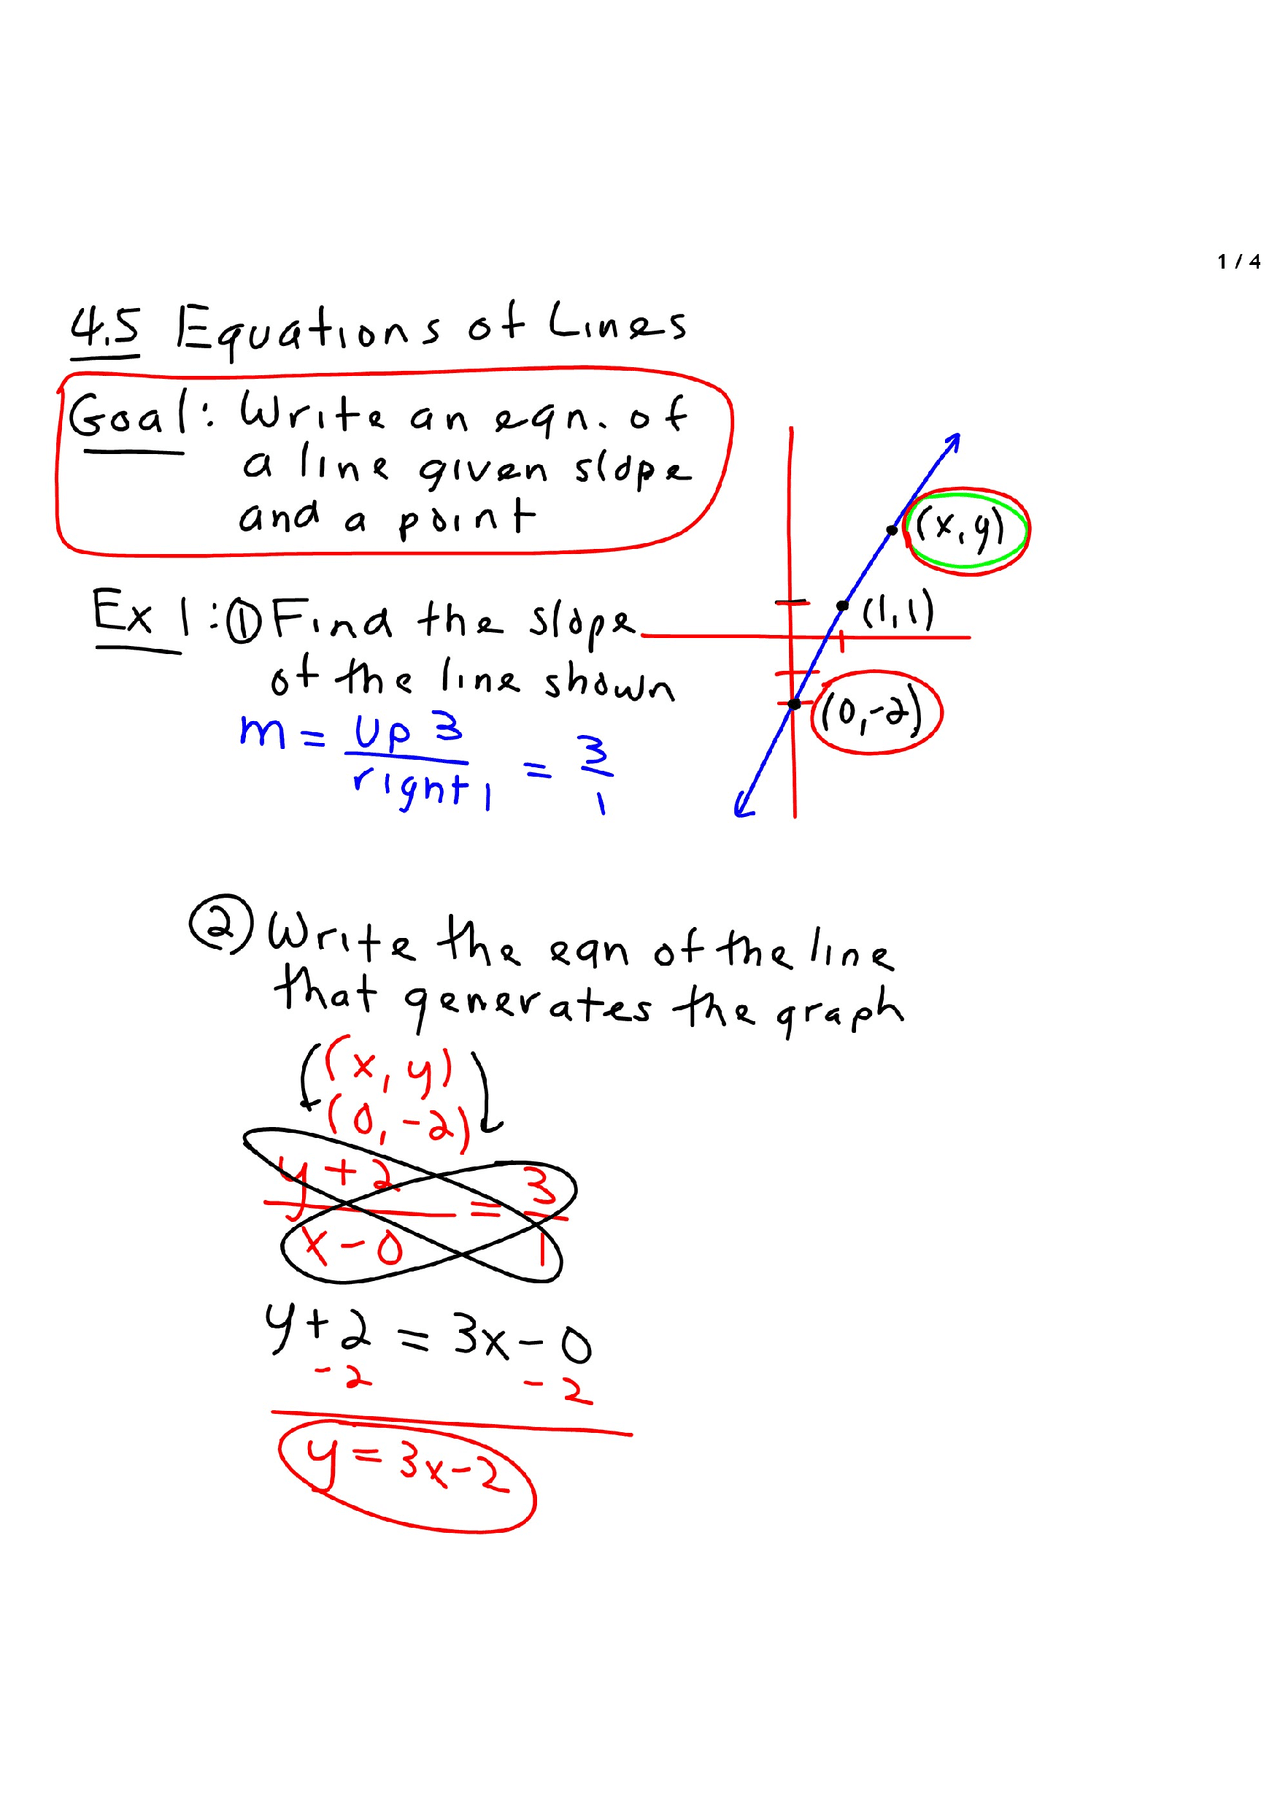 1 / 4
4.5 Equations of Lines
Goal: Write an eqn. of
a line given slope
and a point
(x,y)
(1,1)
(0,-2)
Ex 1: ① Find the slope
of the line shown
m = up 3 / right 1 = 3/1
② Write the eqn of the line
that generates the graph
(x, y)
(0, -2)
y + 2 / x - 0 = 3/1
y + 2 = 3x - 0
-2 -2
y = 3x - 2